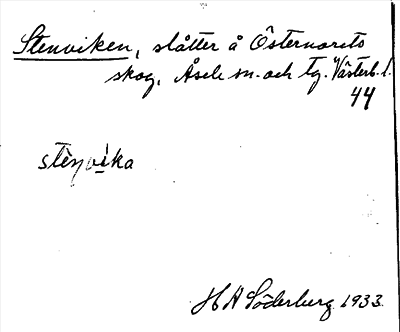 Stenviken, slåtter å Östernorets
skog, Åsele sn. och tg. Västerb. l.
44
stènvìka
H A Söderberg 1933.